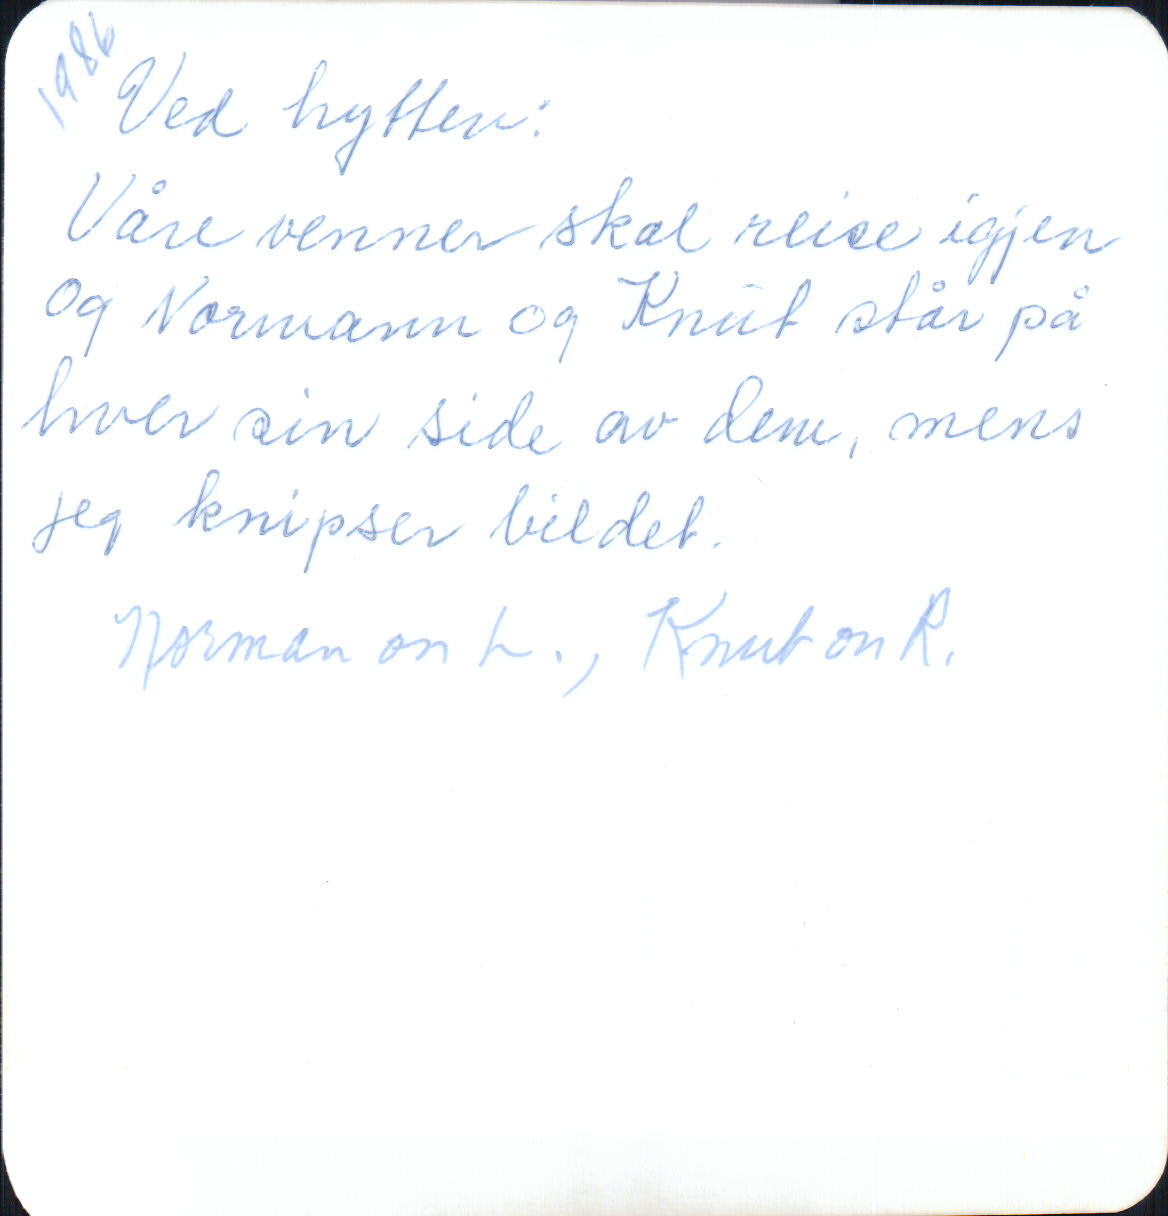 1986
Ved hytten:
Våre venner skal reise igjen
og Normann og Knut står på
hver sin side av dem, mens
jeg knipser bildet.
Norman on L., Knut on R.